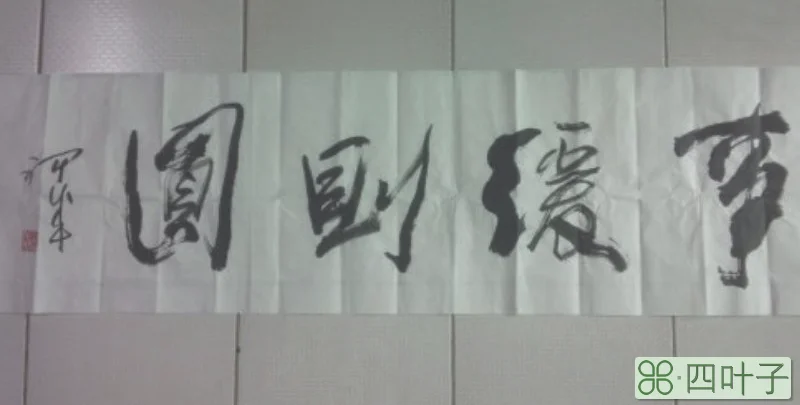 事緩則圓
四叶子